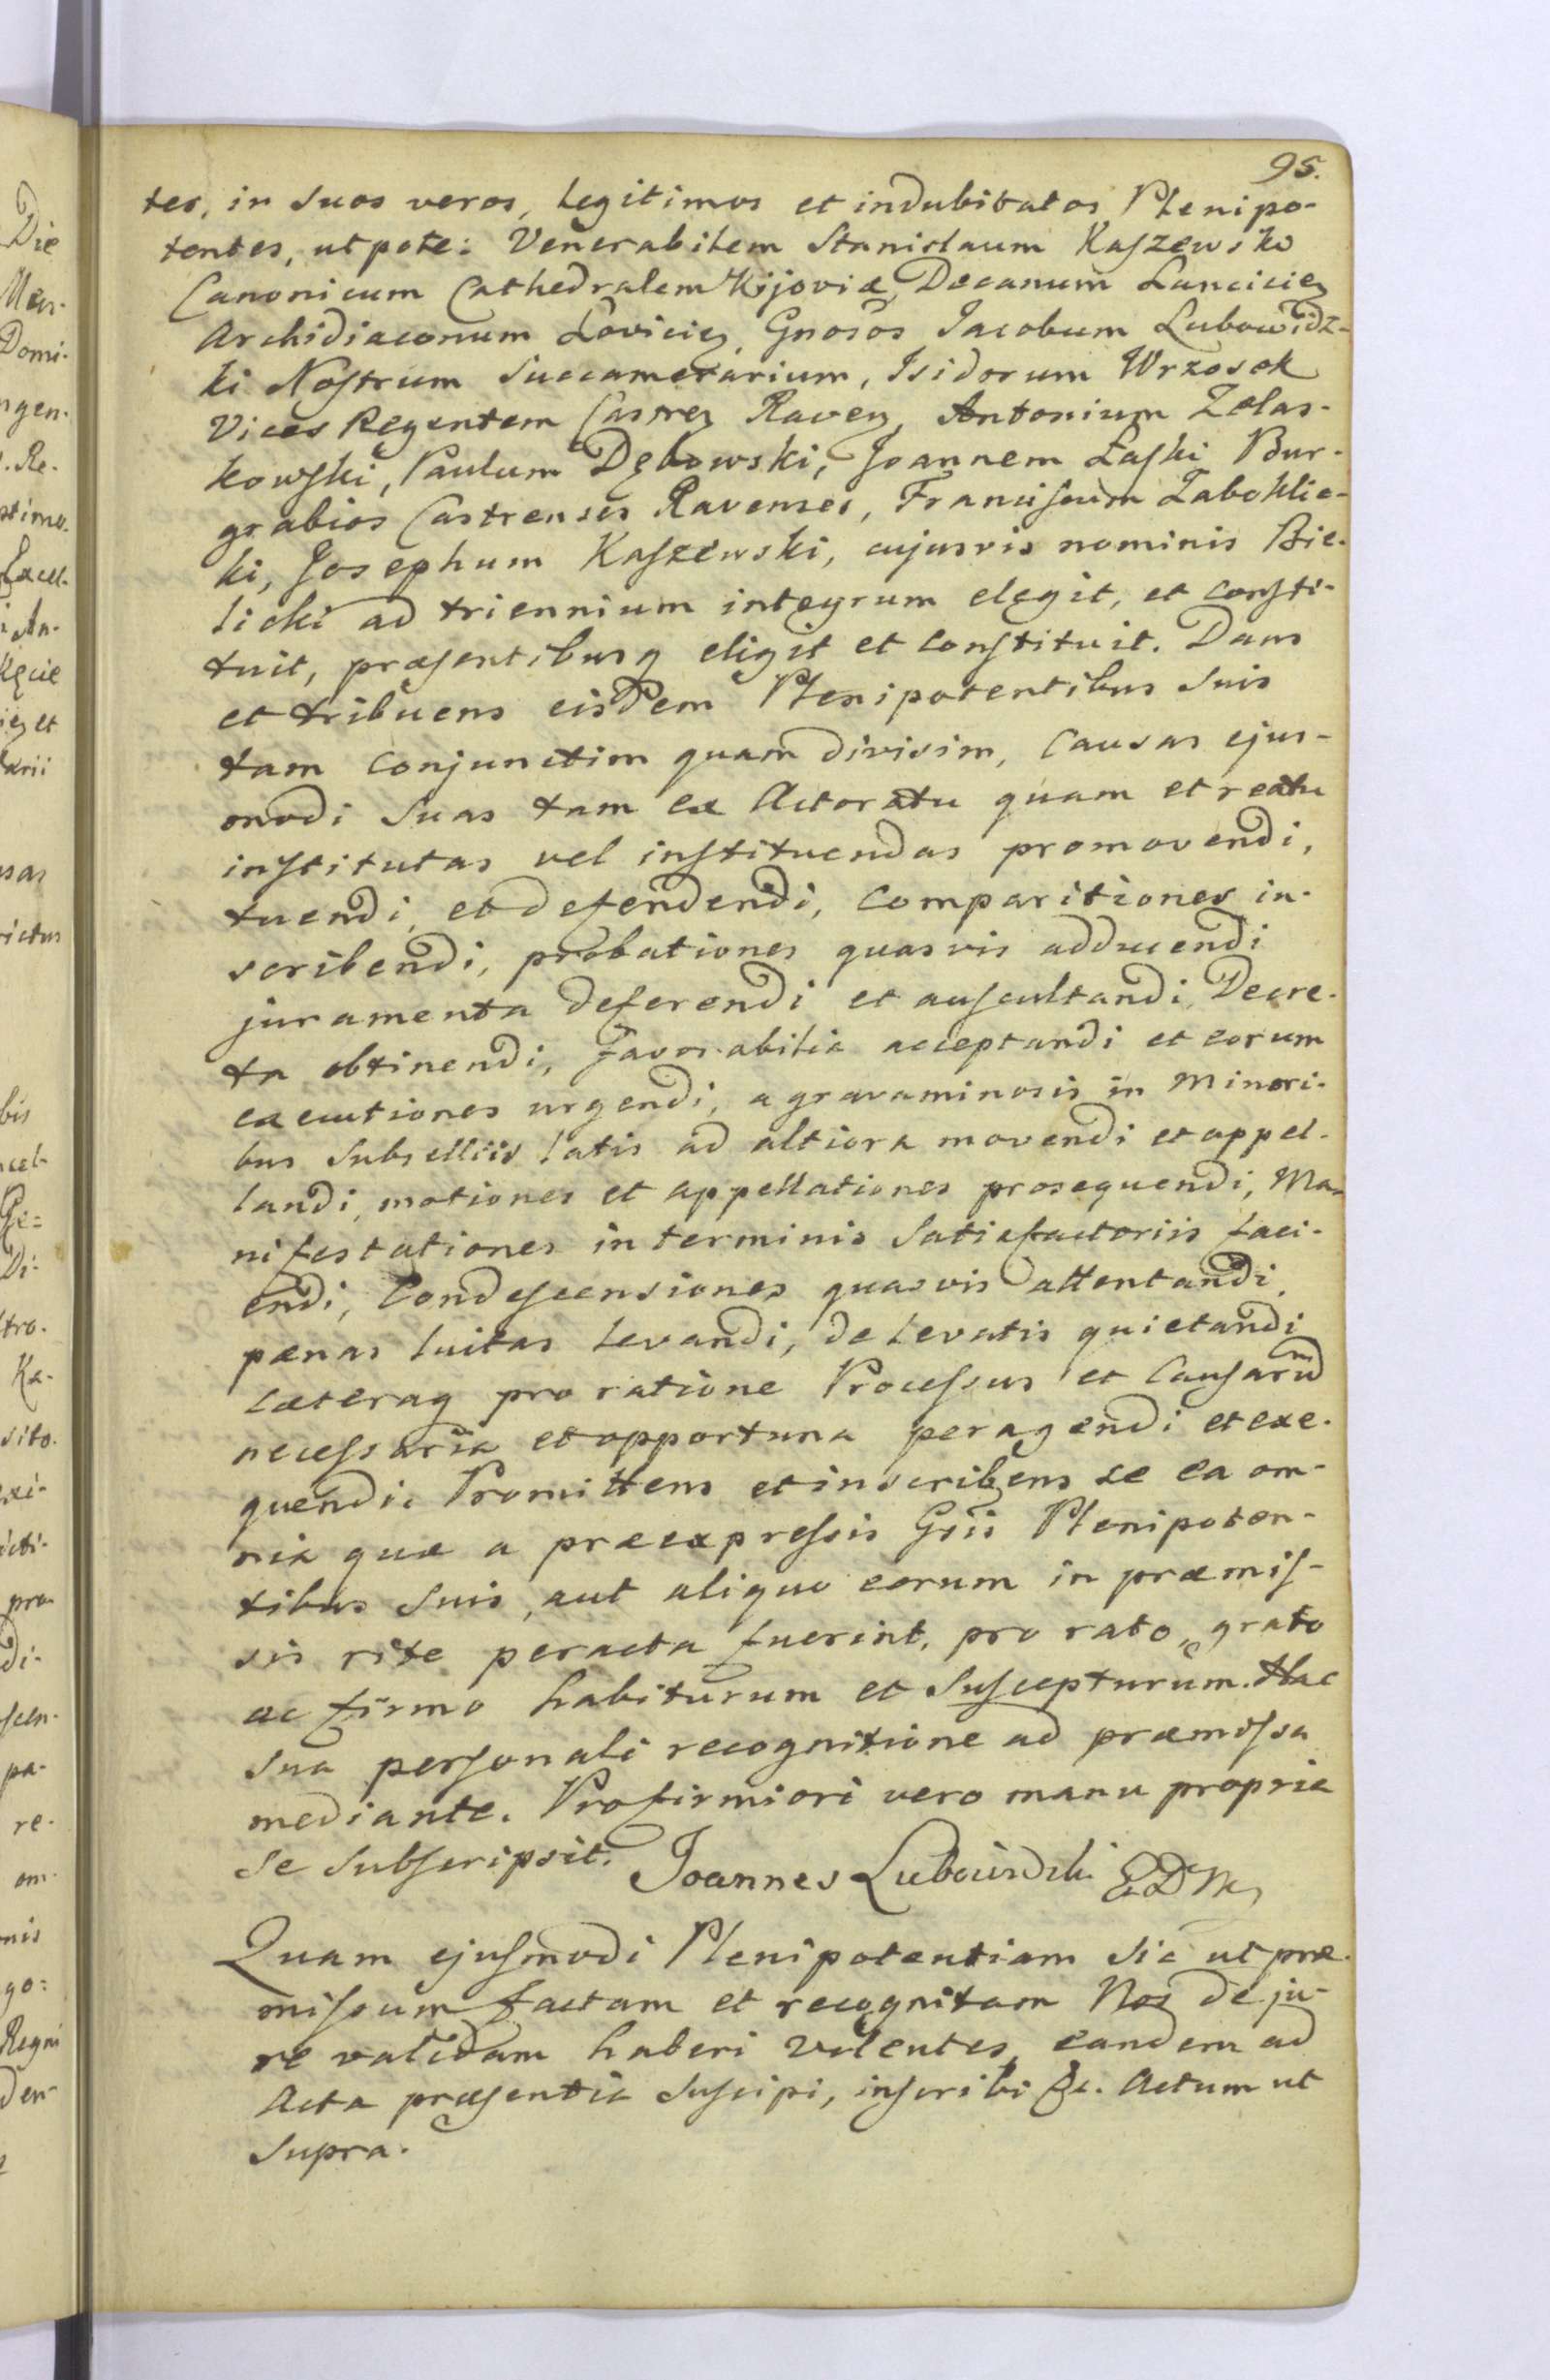 95.
tes, in suos veros, legitimos et indubitatos Plenipo-
tentes, utpote: Venerabilem Stanislaum Kaszewski
Canonicum Cathedralem Kijoviæ, Decanum Lancicien
Archidiaconum Lovicien, Gnosos Jacobum Lubowidz-
ki Nostrum Succamerarium, Isidorum Wrzosek
Vices Regentem Castren Raven, Antonium Zolas-
kowski, Paulum Dębowski, Joannem Łaski Bur-
grabios Castrenses Ravenses, Franciscum Zabokli-
ki, Josephum Kaszewski, cujusvis nominis Bie-
licki ad triennium integrum elegit, et consti-
tuit, præsentibusq eligit et constituit. Dans
et tribuens eisdem Plenipotentibus suis
tam conjunctim quam divisim, causas ejus-
modi suas tam ex Actoratu quam et reatu
institutas vel instituendas promovendi,
tuendi, et defendendi, comparitiones in-
scribendi, probationes quasvis adducendi
juramenta deferendi et auscultandi, Decre-
ta obtinendi, Favorabilia acceptandi et eorum
executiones urgendi, a gravaminosis in minori-
bus subselliis latis ad altiora movendi et appel-
landi, motiones et appellationes prosequendi, Ma-
nifestationes in terminis satisfactoriis faci-
endi, Condescensiones quasvis attentandi,
pænas luitas levandi, de levatis quietandi
cæteraq pro ratione Processus et Causarum
necessaria et opportuna peragendi et exe-
quendi. Promittens et inscribens se ea om-
nia quæ a præexpressis Gsis Plenipoten-
tibus suis, aut aliquo eorum in præmis-
sis rite peracta fuerint, pro rato, grato
ac firmo habiturum et suscepturum. Hac
sua personali recognitione ad præmissa
mediante. Pro firmiori vero manu propria
se subscripsit. Joannes Lubowidzki
Quam ejusmodi Plenipotentiam sic ut præ-
missum factam et recognitam Nos de ju-
re validam haberi volentes, eandem ad
Acta præsentia suscipi, inscribi &c. Actum ut
supra.